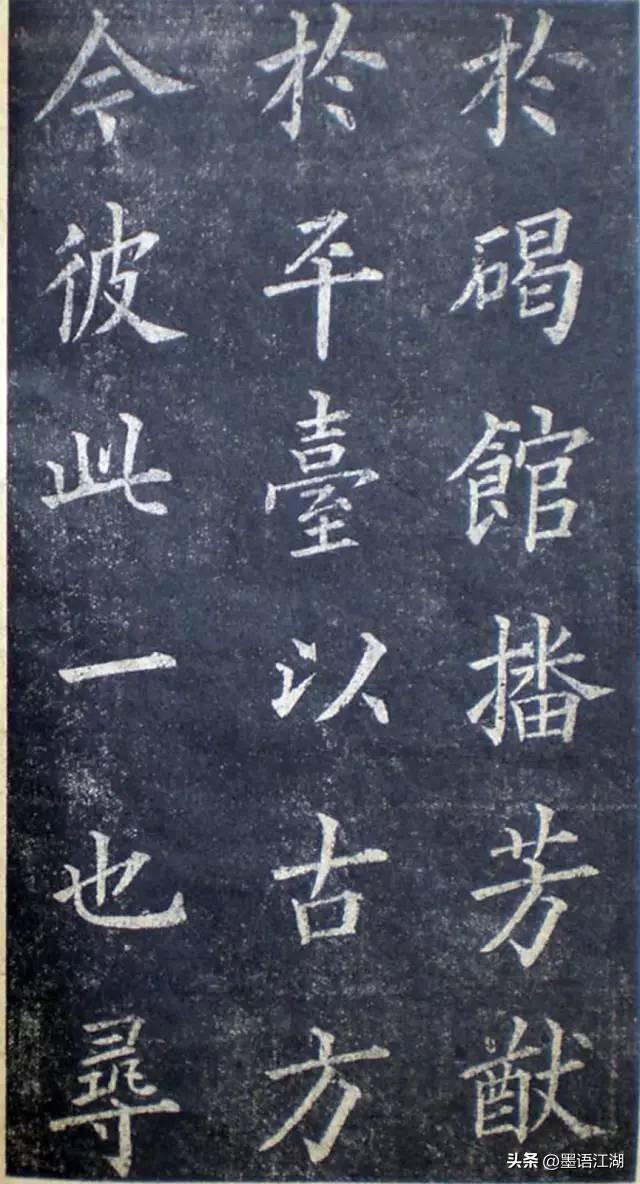 於碣館播芳猷
於平臺以古方
今彼此一也尋
头条 @墨语江湖